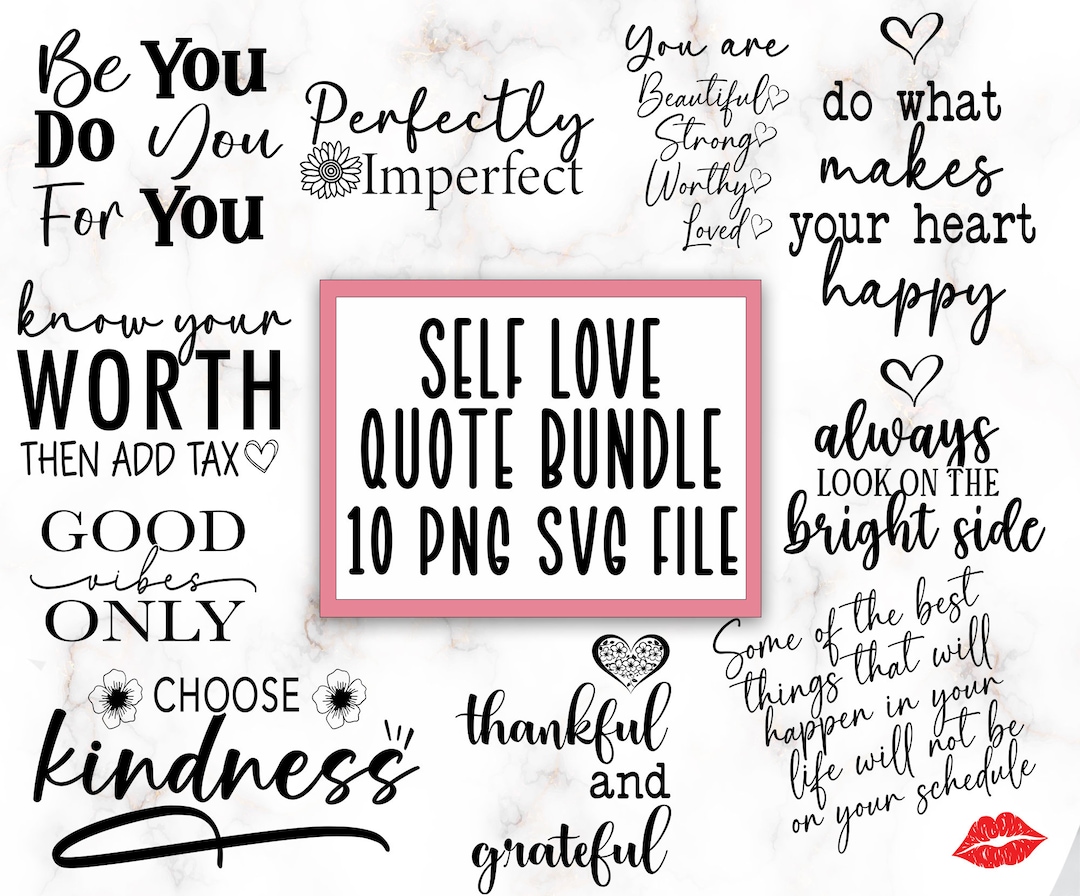 Be You
Do You
For You
Perfectly
Imperfect
You are
Beautiful
Strong
Worthy
Loved
do what
makes
your heart
happy
know your
WORTH
THEN ADD TAX
SELF LOVE
QUOTE BUNDLE
10 PNG SVG FILE
always
LOOK ON THE
bright side
GOOD
vibes
ONLY
CHOOSE
kindness
thankful
and
grateful
Some of the best
things that will
happen in your
life will not be
on your schedule